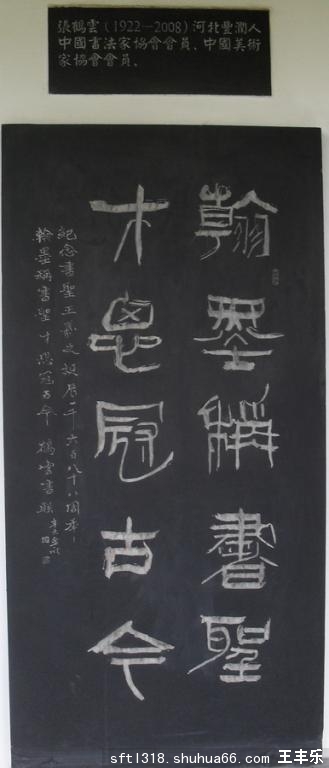 張鶴雲（1922—2008）河北豐潤人
中國書法家協會會員、中國美術
家協會會員。
翰墨稱書聖
才思冠古今
紀念書聖王羲之誕辰一千六百八十八周年
翰墨稱書聖 才思冠古今 鶴雲書
sftl318.shuhua66.com 王丰乐